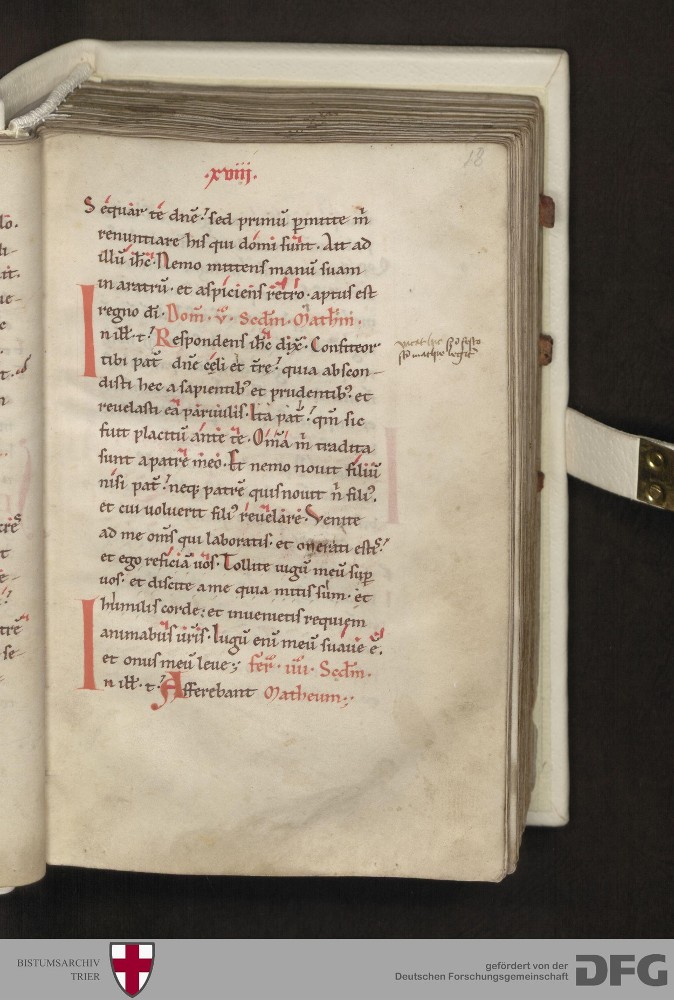 .xviij.
18
Sequar te dne. sed primu pmitte m
renuntiare his qui domi sunt. Ait ad
illu ihc. Nemo mittens manu suam
in aratru. et aspiciens retro. aptus est
regno di. Dom. v. Scdm. Mathm.
In ill. t. Respondens ihc dix. Confiteor
tibi pat dne celi et tre. quia abscon-
disti hec a sapientib et prudentib. et
reuelasti ea paruulis. Ita pat. qm sic
fuit placitu ante te. Oma m tradita
sunt a patre meo. Et nemo nouit filiu
nisi pat. neq patre quis nouit n fili.
et cui voluerit fili reuelare. Venite
ad me oms qui laboratis. et onerati estis.
et ego reficia uos. Tollite iugu meu sup
uos. et discite a me quia mitis sum. et
humilis corde: et inuenietis requiem
animabus uris. Iugu eni meu suaue e.
et onus meu leue; fer. iiii. Scdm.
In ill. t. Afferebant Matheum;
BISTUMSARCHIV
TRIER
gefördert von der
Deutschen Forschungsgemeinschaft
DFG